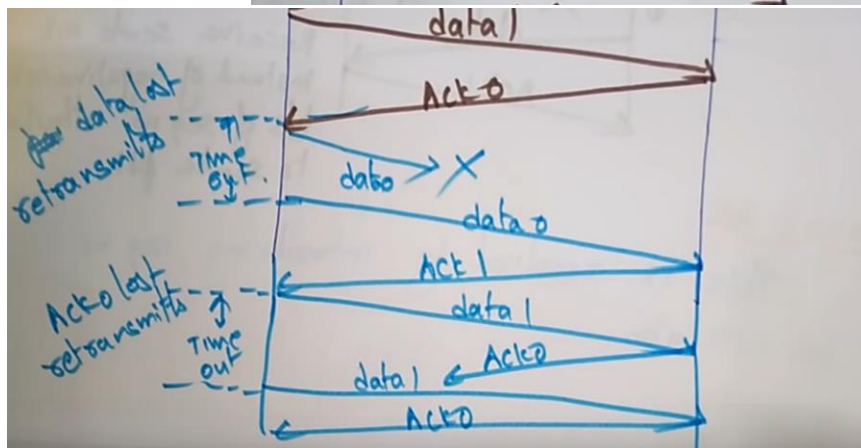 data 1
Ack 0
data lost
retransmitts
Time
out.
data0
X
data 0
Ack 1
Ack0 lost
retransmitts
Time
out
data 1
Ack0
data 1
Ack0